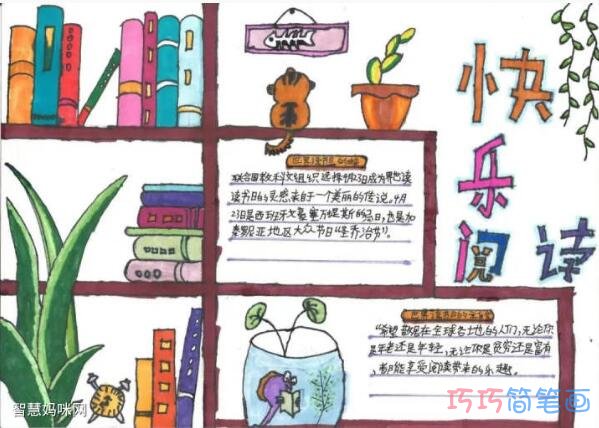 快
乐
阅读
世界读书日的
联合国教科文组织选择4月23日成为世界读
读书日的灵感来自于一个美丽的传说。4月
23日是西班牙文豪塞万提斯的忌日,也是加
泰罗尼亚地区大众节日“圣乔治节”。
世界读书日的主旨宣言
“希望散居在全球各地的人们,无论你
是年老还是年轻,无论你是贫穷还是富有,
都能享受阅读带来的乐趣。
智慧妈咪网
巧巧简笔画